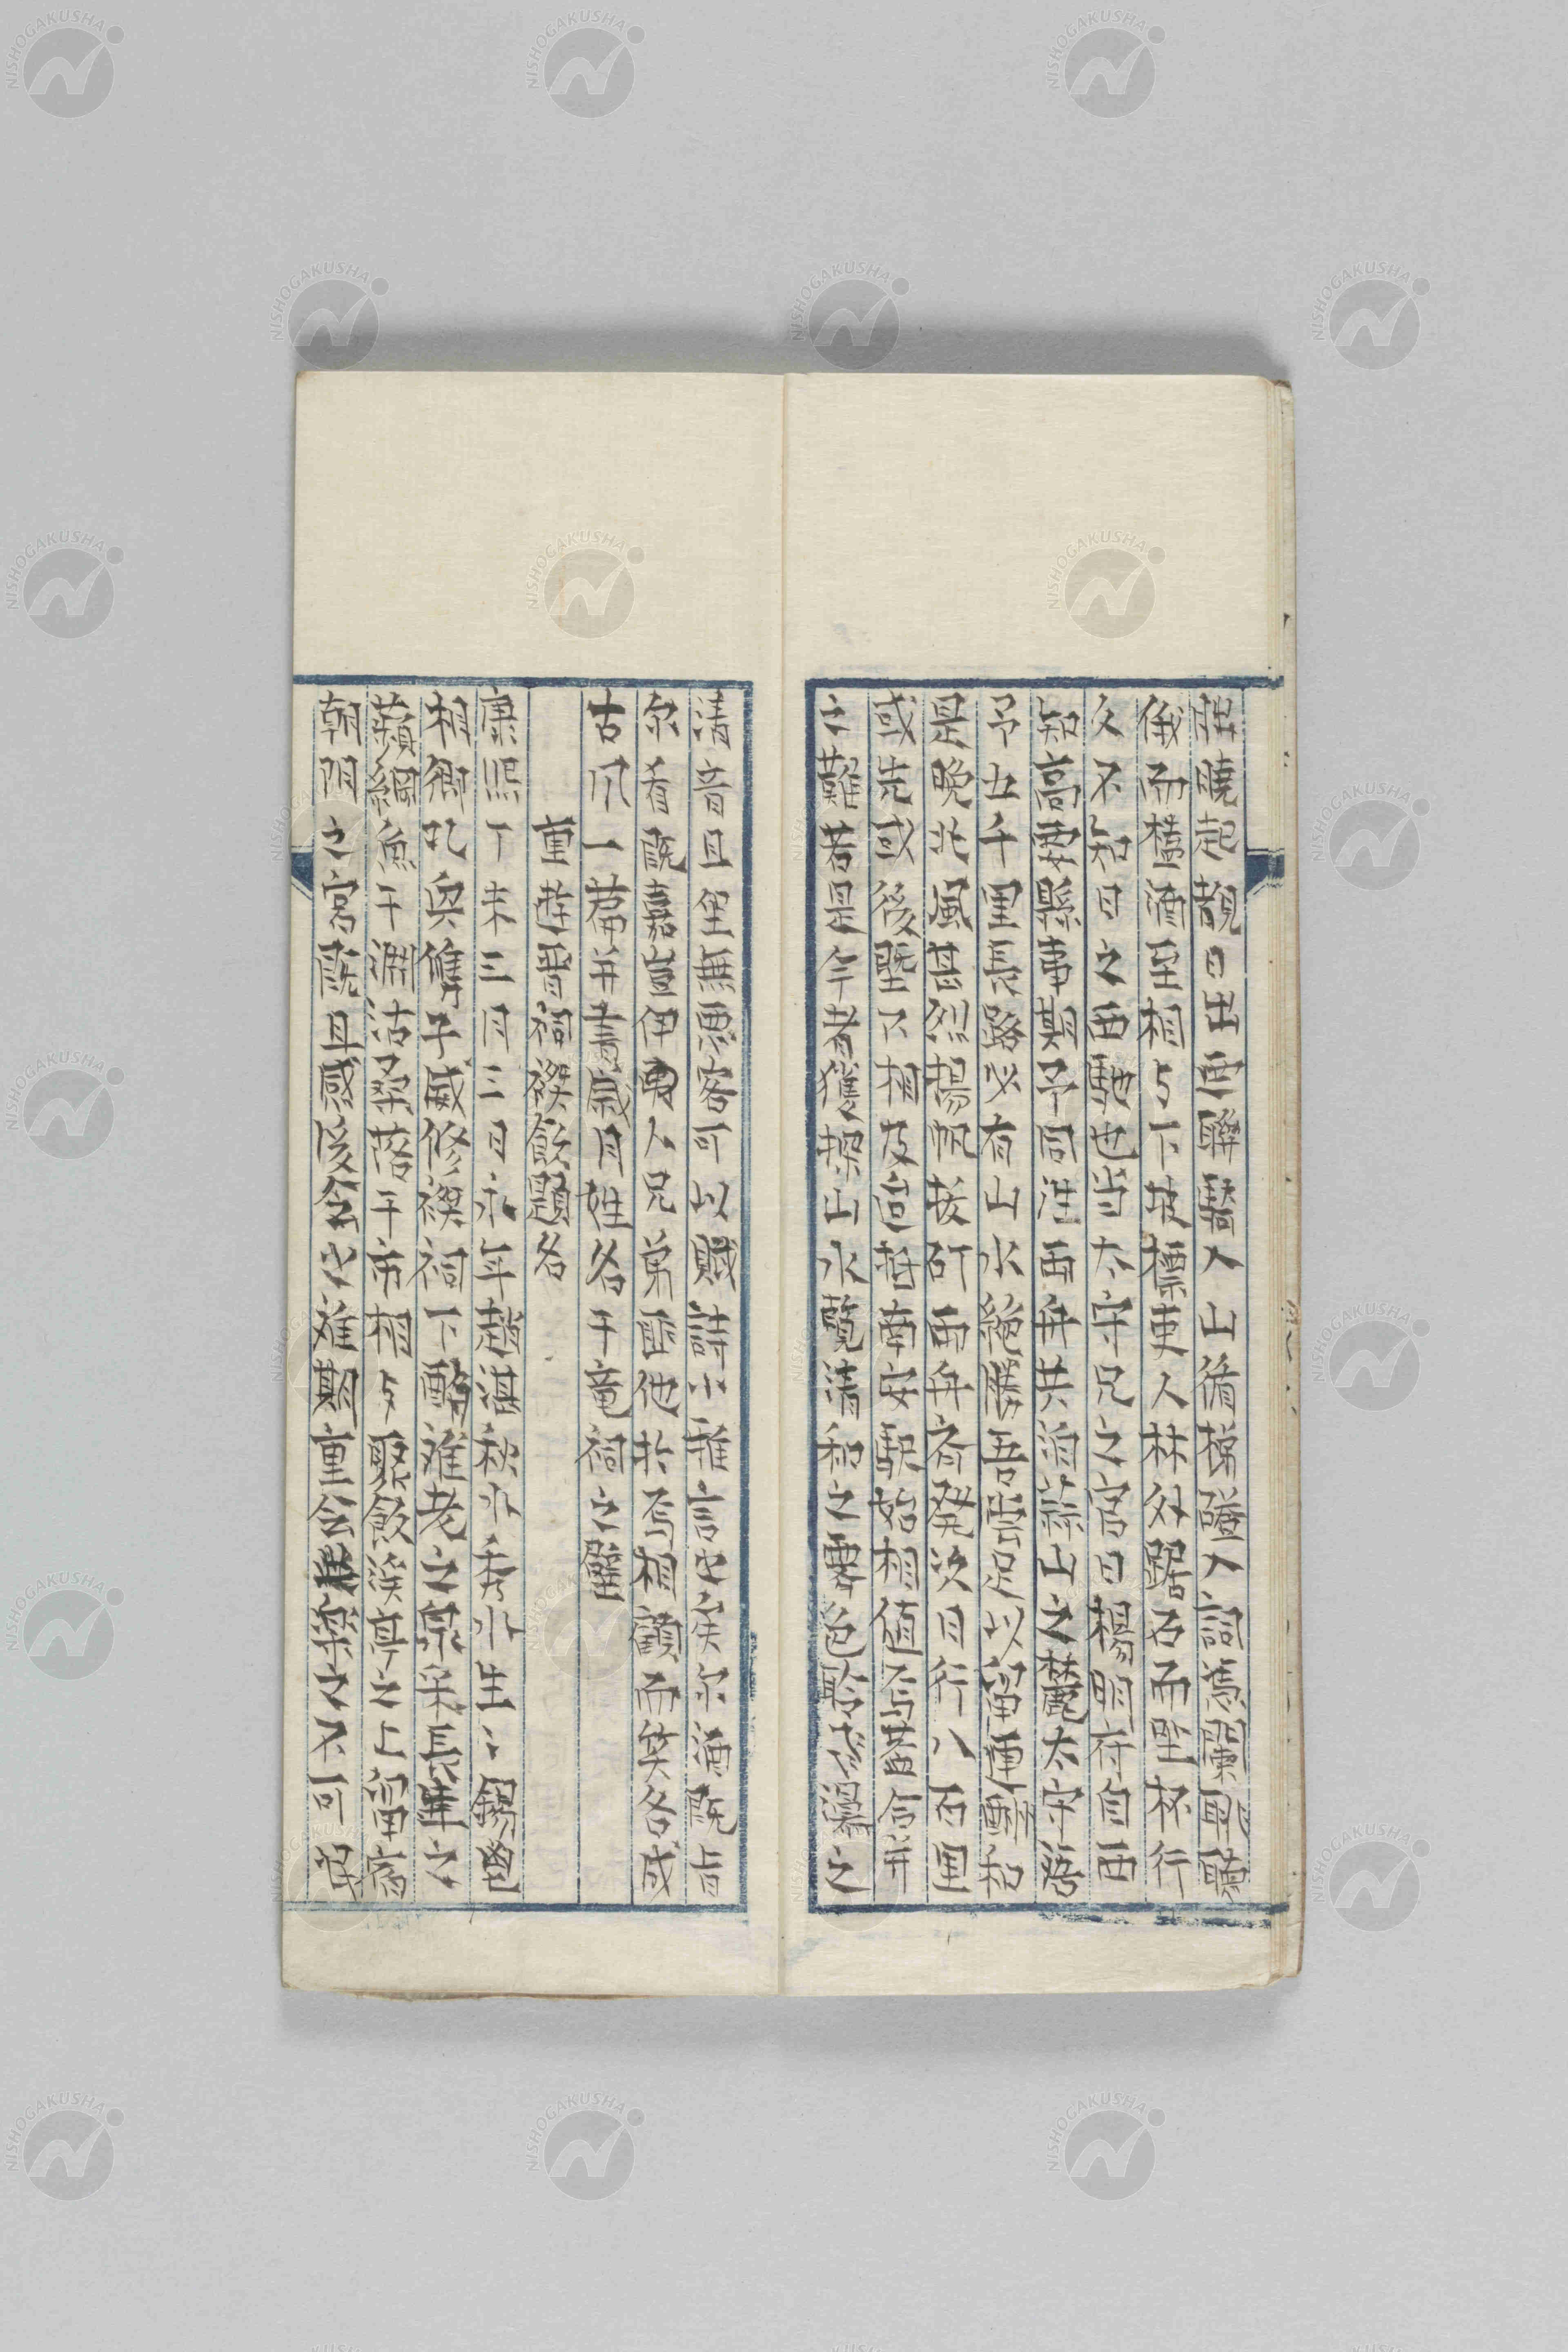 曉起觀日出更聯騎入山循梯磴入祠憑闌眺聽
俄而榼酒至相与下坡標吏人林外踞石而坐杯行
久不知日之西馳也当太守兄之官日楊明府自西
知高要縣事期予同泩西舟共泊蒜山之麓太守語
予五千里長路必有山水絕勝吾曹足以留連酬和
是晚北風甚烈揚帆拔矴両舟齐発次日行八百里
或先或後曁不相及迨抵南安駅始相值焉蓋合并
之難若是今者獲探山水覽清和之霽色聆崖瀑之
清音且坐無悪客可以賦詩小雅言之矣尔酒既旨
尔肴既嘉豈伊異人兄弟匪他於焉相顧而笑各成
古风一篇并書歲月姓名于竜祠之壁
重遊晋祠禊飲題名
康熙丁未三月三日永年趙湛秋水秀水朱彝尊錫鬯
相鄉飲奥雋子威修禊祠下酹難老之泉采長生之
蘋網魚于淵沽桑落于市相与聚飲溪亭之上留宿
朝阳之宮既且感後会之难期重会樂之不可忘